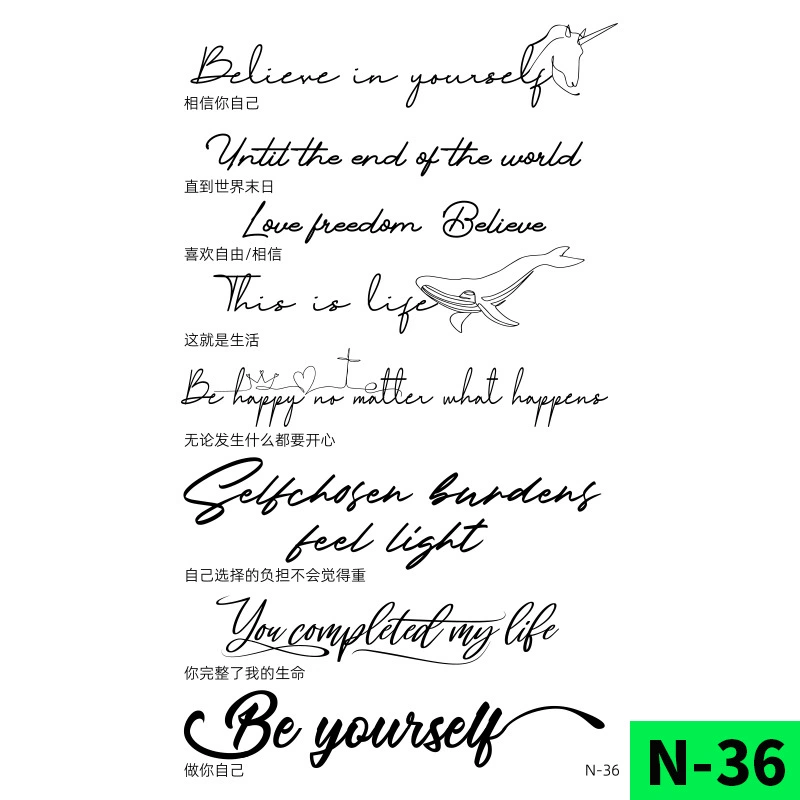 Believe in yourself
相信你自己
Until the end of the world
直到世界末日
Love freedom Believe
喜欢自由/相信
This is life
这就是生活
Be happy no matter what happens
无论发生什么都要开心
Selfchosen burdens
feel light
自己选择的负担不会觉得重
You completed my life
你完整了我的生命
Be yourself
做你自己
N-36
N-36